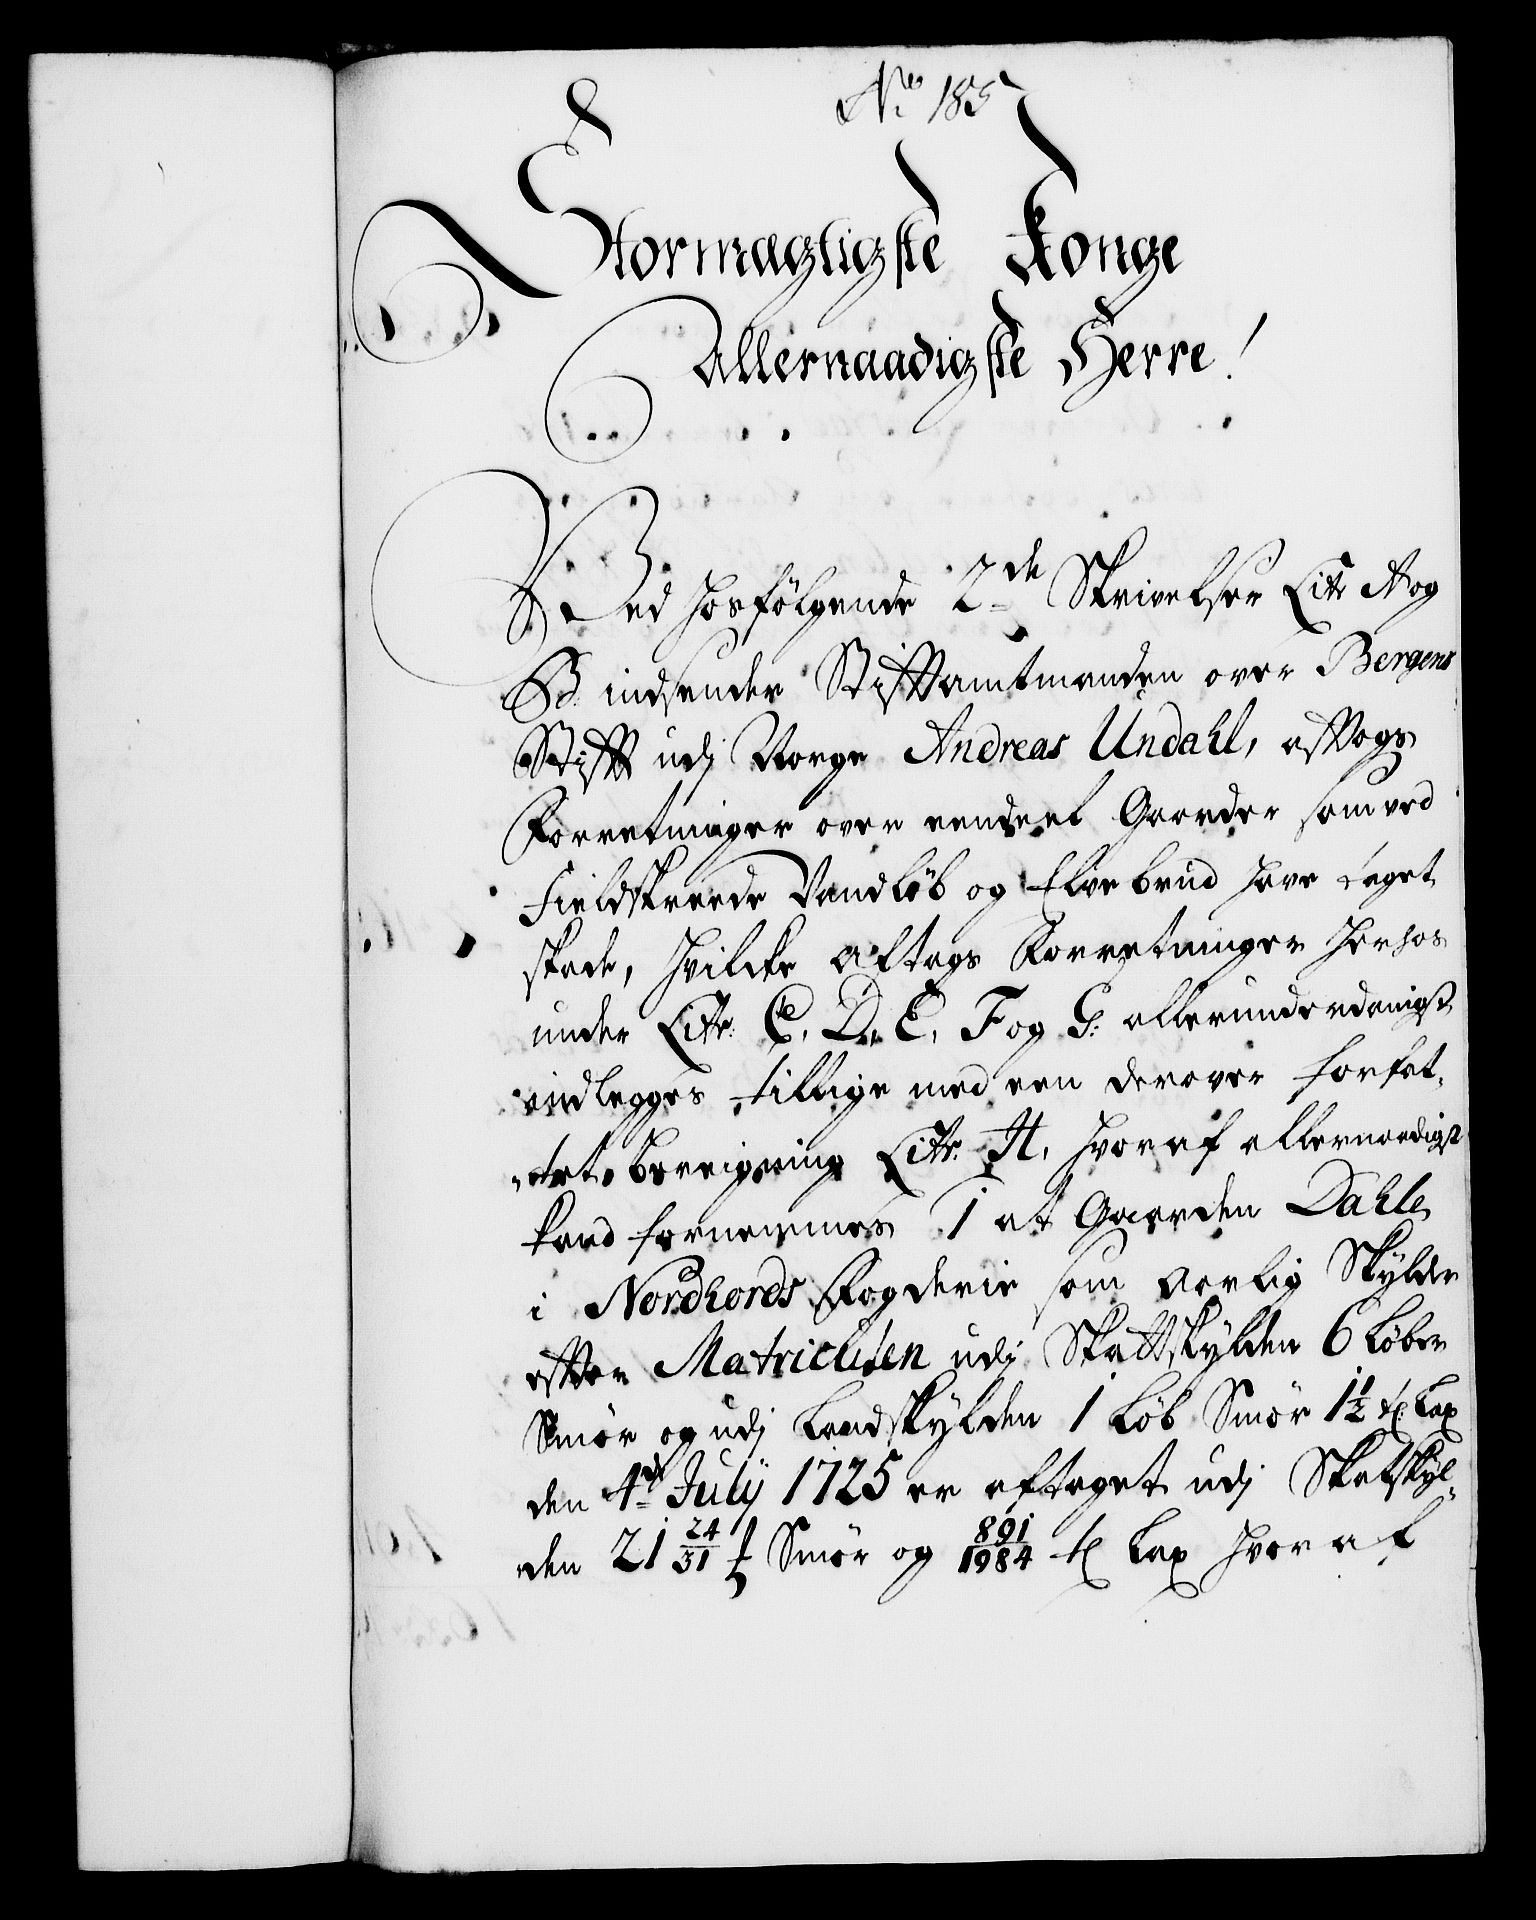 No 185
Stormægtigste Konge
Allernaadigste Herre!
Ved hosfölgende 2de Skrivelser Litr A og
B. indsender Stifftamtmanden over Bergens
Stifft udj Norge Andreas Undahl, afftags
Forretninger over eendeel Gaarder som ved
Fieldskreede Vandløb og Elvebrud have taget
skade, hvilcke Aftags Forretninger herhos
under Litr: C, D, E, F og G: allerunderdanigst
indlegges tillige med een derover forfat-
tet beregning Litr. H, hvoraf allernaadigst
kand fornemmes 1 at Gaarden Dahle
i Nordhords Fogderie som aarlig Skylder
effter Matriculen udj Skattskylden 6 Løber
Smør og udj Landskylden 1 Løb Smör 1½ t Lax
den 4de Julij 1725 er aftaget udj Skatskyl-
den 21 24/31 ℔ Smör og 891/1984 t Lax hvoraf